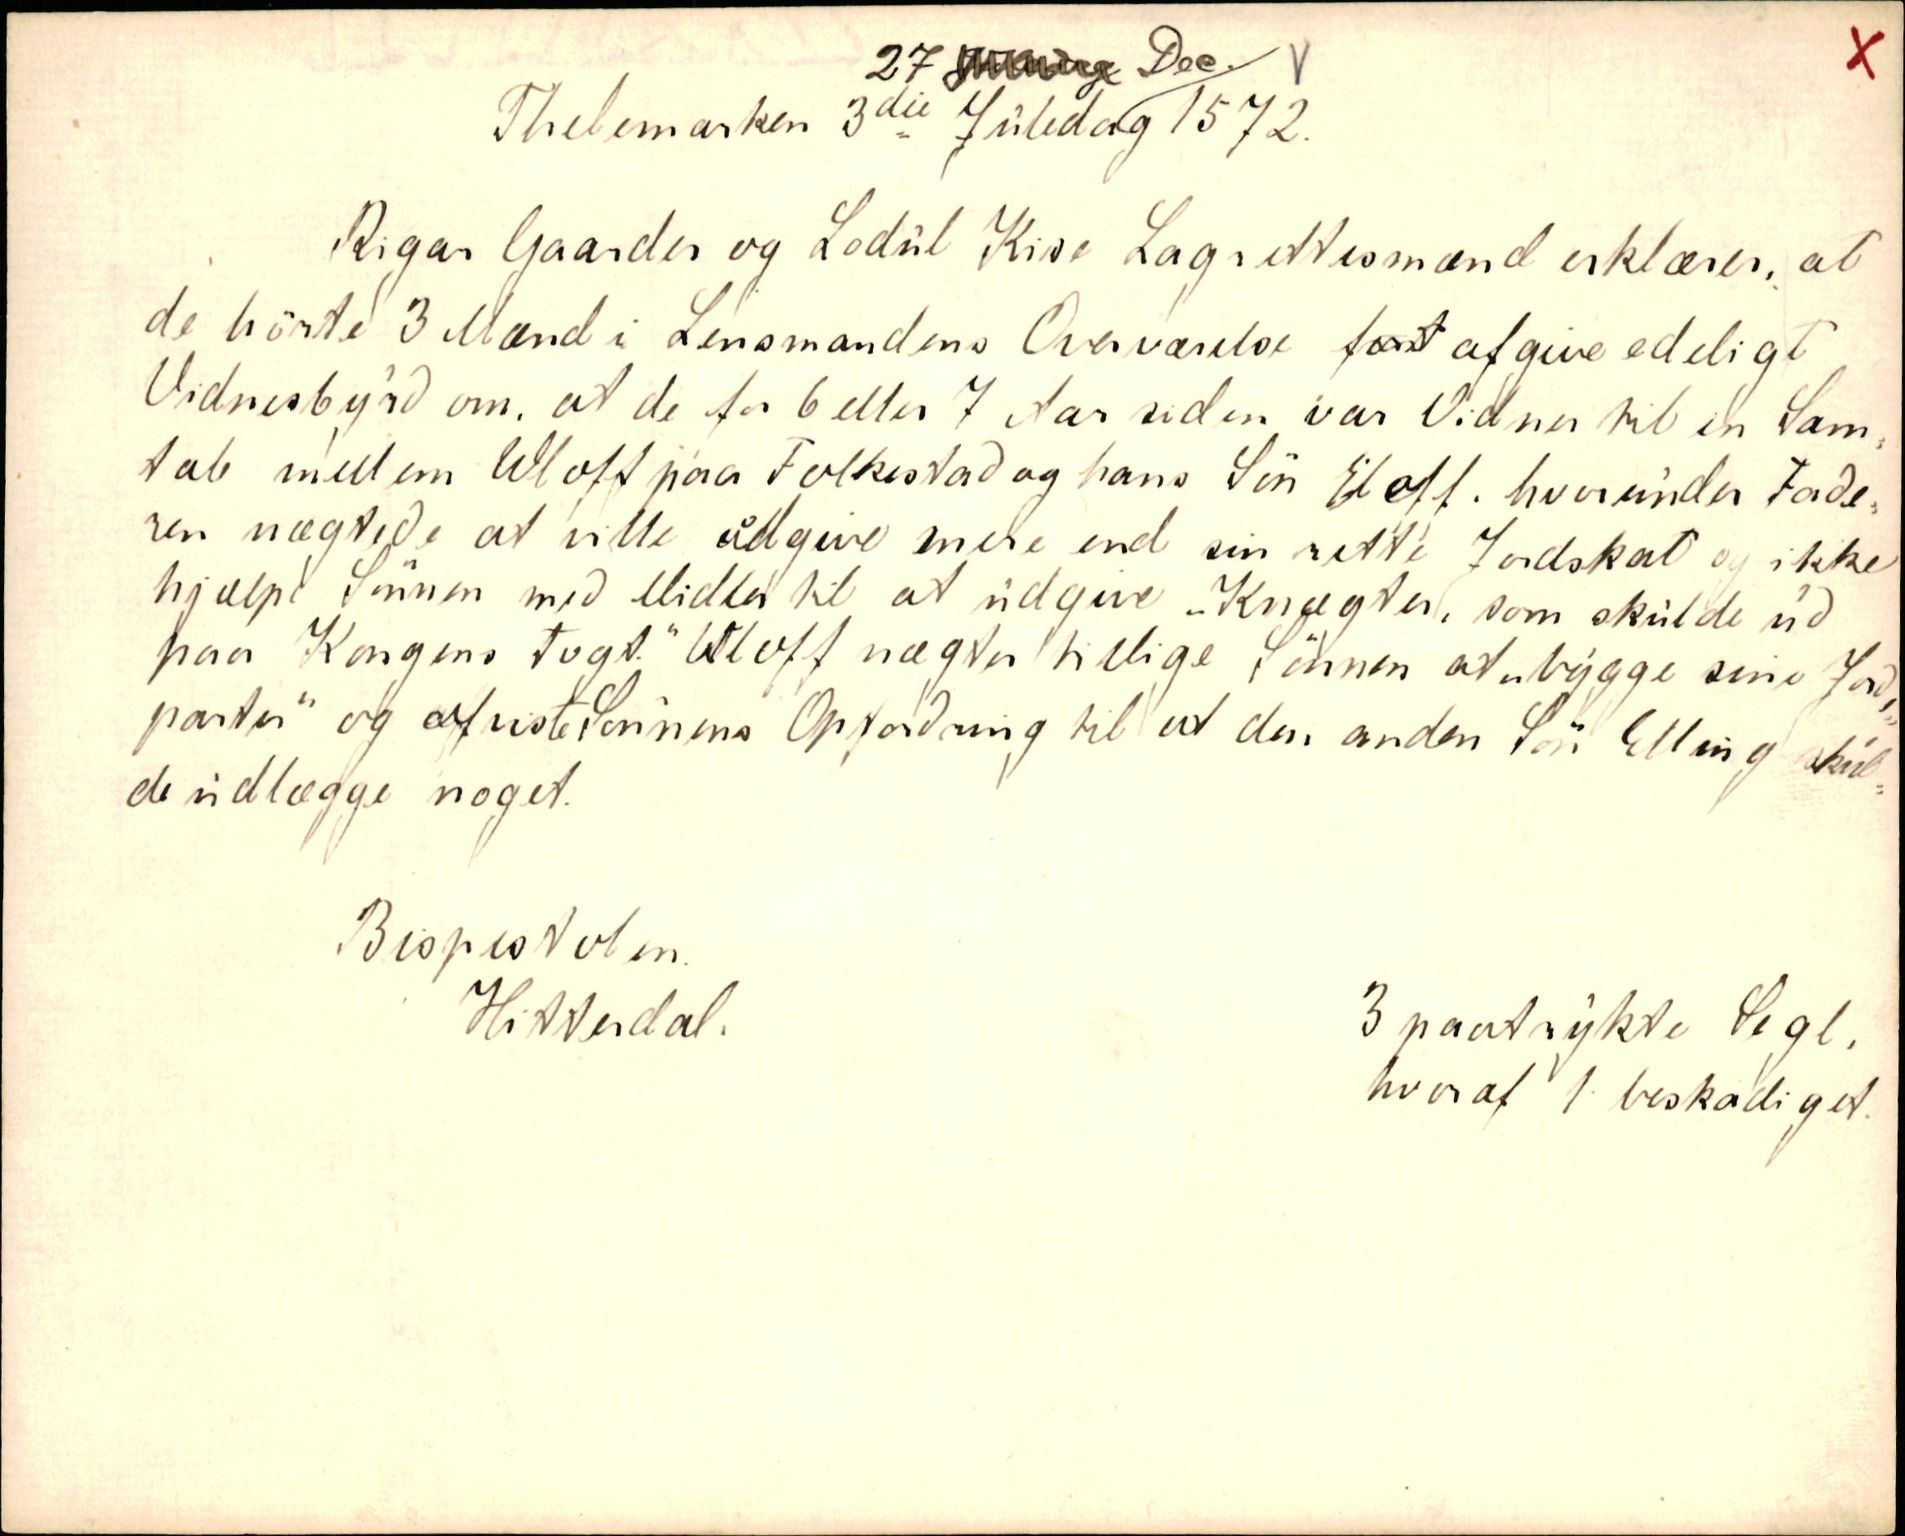 27 Dec. V X
Thelemarken 3die Juledag 1572.
Rigar Gaarder og Lodul Kise Lagrettesmænd erklærer, at
de hörte 3 Mænd i Lensmandens Overværelse afgive edeligt
Vidnesbyrd om, at de for 6 eller 7 Aar siden var Vidner til en Sam-
tale mellem Uloff paa Folkestad og hans Sön Eloff, hvorunder Fade-
ren nægtede at ville udgive mere end sin rette Jordskat og ikke
hjælpe Sönnen med Midler til at udgive "Knægter, som skulde ud
paa Kongens Togt." Uloff nægter tillige Sönnen at "bygge sine Jord-
parter" og afviste Sönnens Opfordring til at den anden Sön Elling skul-
de udlægge noget.
Bispestolen.
Hitterdal.
3 paatrykte Segl,
hvoraf 1 beskadiget.